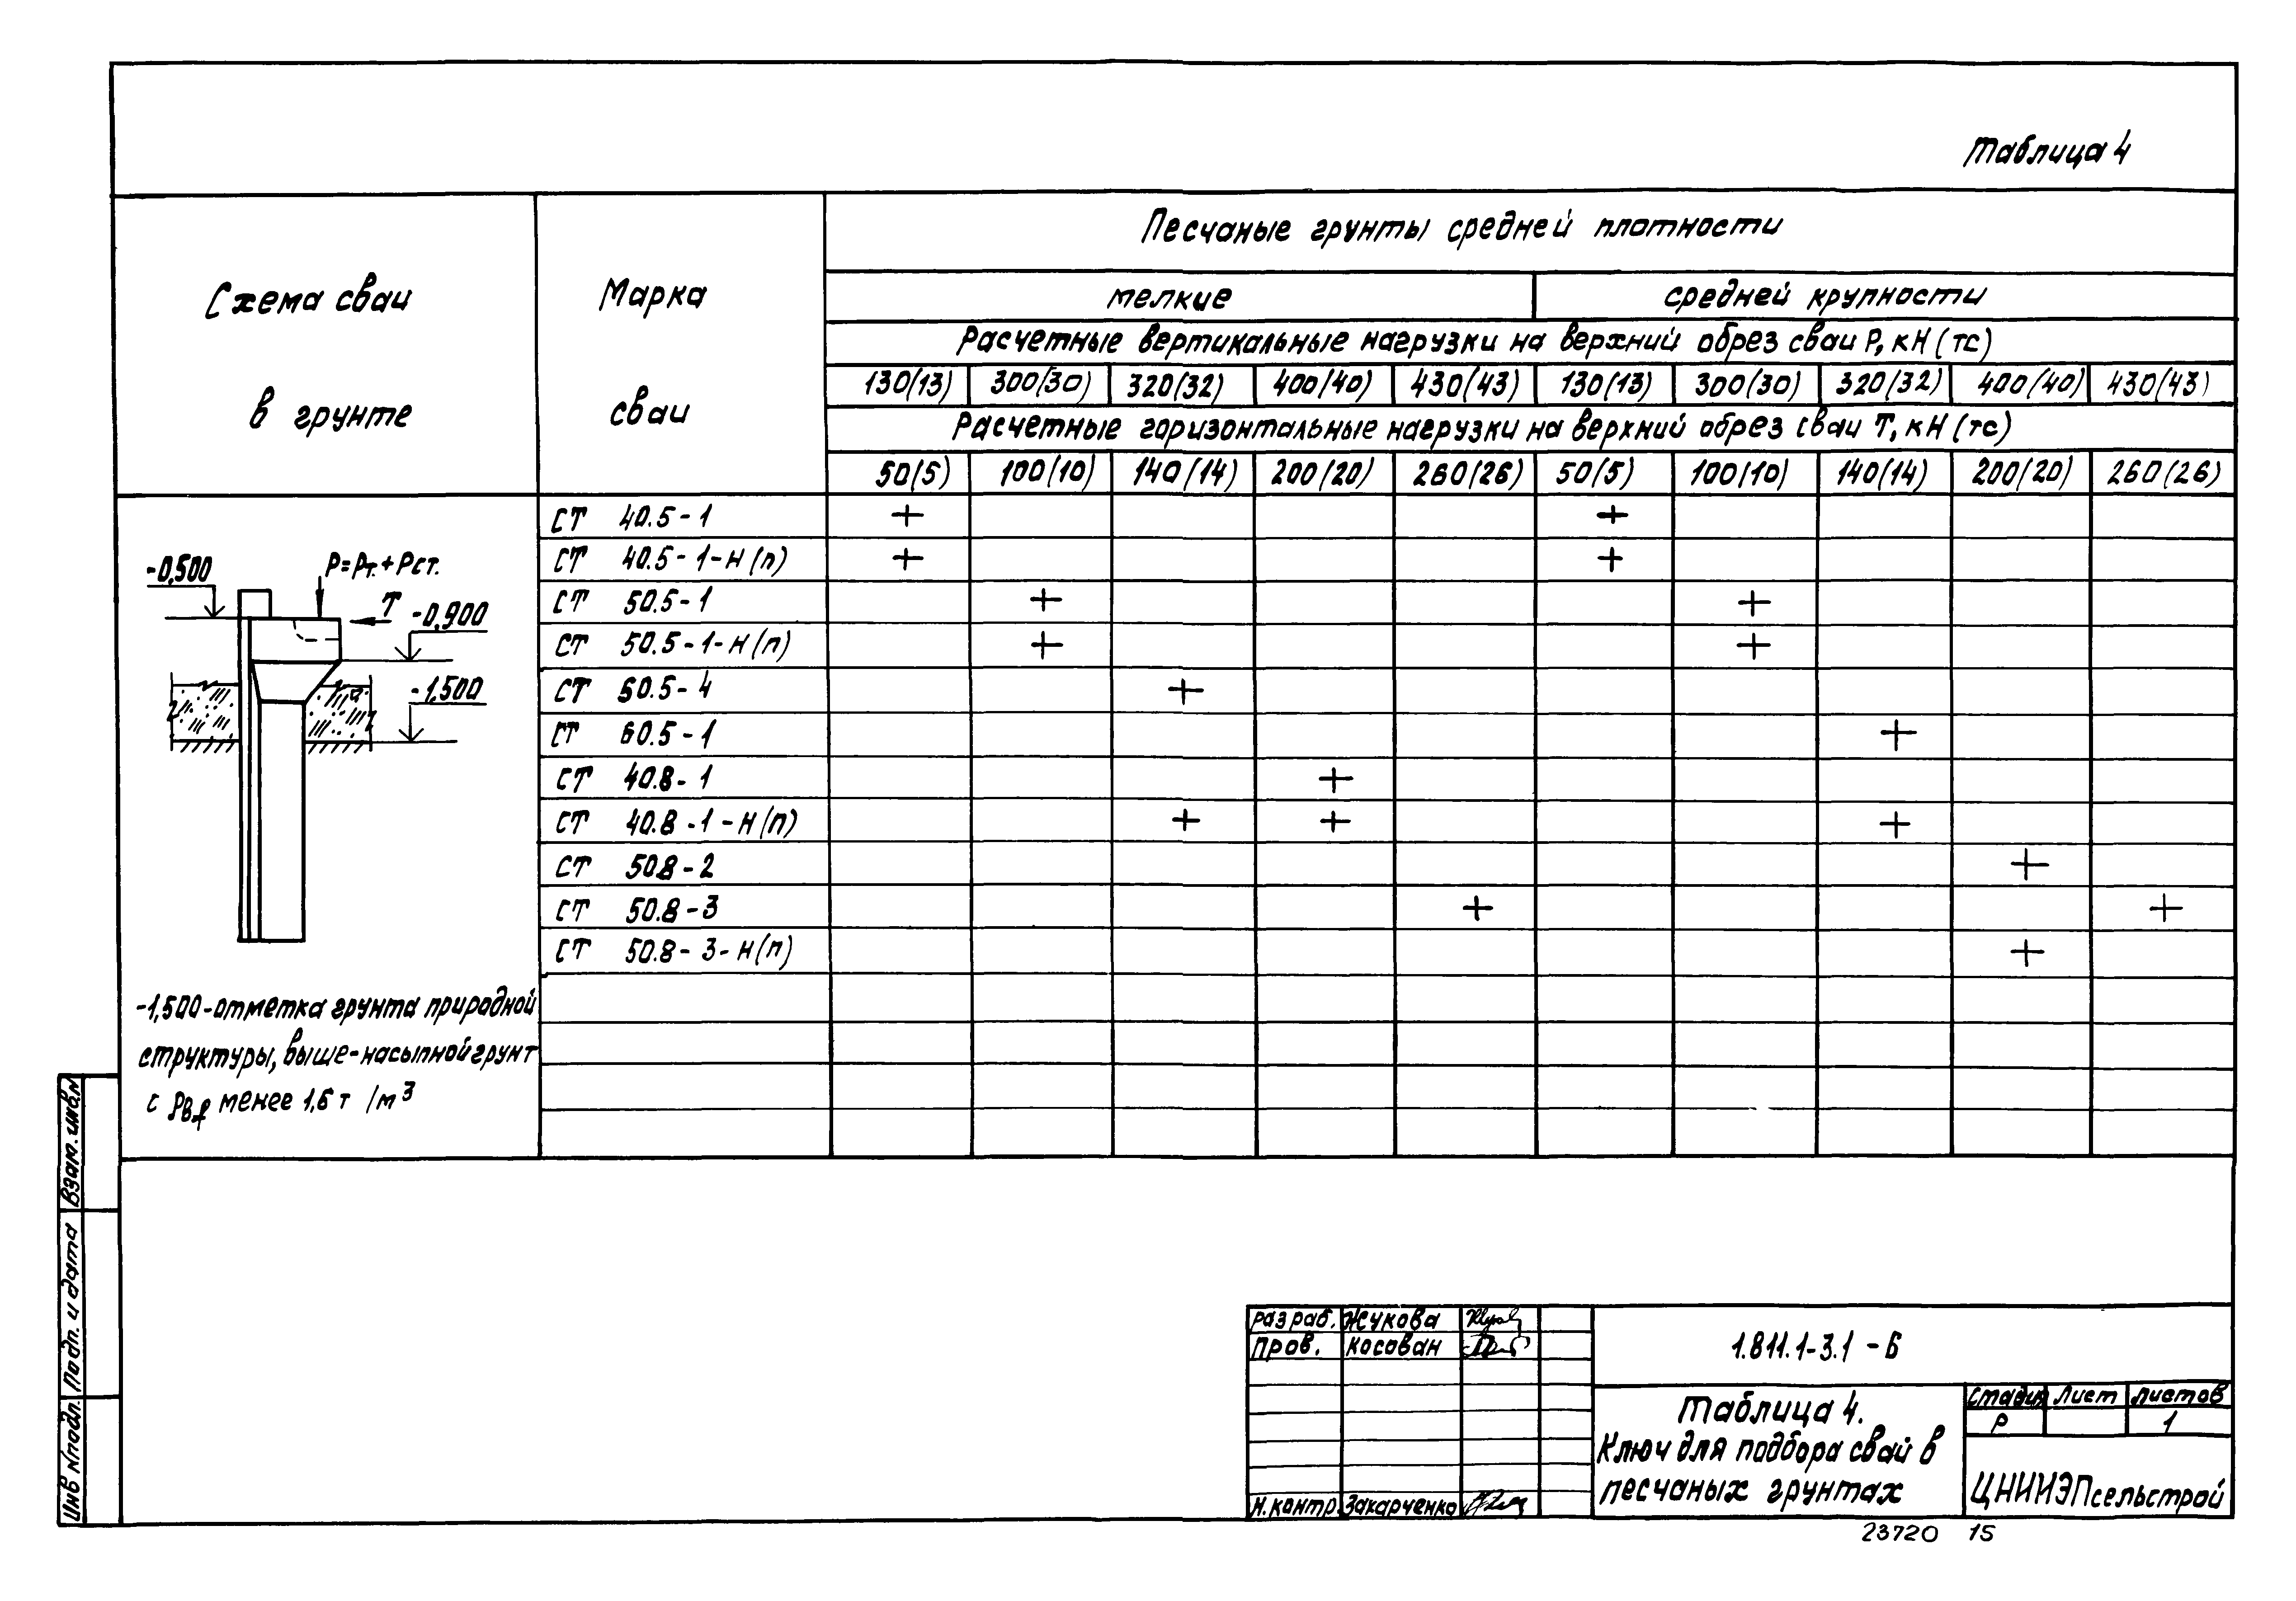 Таблица 4
Схема сваи в грунте
Марка сваи
Песчаные грунты средней плотности
мелкие
средней крупности
Расчетные вертикальные нагрузки на верхний обрез сваи Р, кН (тс)
130(13) 300(30) 320(32) 400(40) 430(43) 130(13) 300(30) 320(32) 400(40) 430(43)
Расчетные горизонтальные нагрузки на верхний обрез сваи Т, кН (тс)
50(5) 100(10) 140(14) 200(20) 260(26) 50(5) 100(10) 140(14) 200(20) 260(26)
СТ 40.5-1 + +
СТ 40.5-1-Н(п) + +
СТ 50.5-1 + +
СТ 50.5-1-Н(п) + +
СТ 50.5-4 +
СТ 60.5-1 +
СТ 40.8-1 +
СТ 40.8-1-Н(п) + + +
СТ 50.8-2 +
СТ 50.8-3 + +
СТ 50.8-3-Н(п) +
-0,500
Р=Рт.+Рст.
Т
-0,900
-1,500
-1,500-отметка грунта природной
структуры, выше-насыпной грунт
с менее 1,6 т/м³
Взам. инв.N
Подп. и дата
Инв Nподл.
Разраб. Жукова
Пров. Косован
Н.контр. Захарченко
1.811.1-3.1 -6
Таблица 4.
Ключ для подбора свай в
песчаных грунтах
Стадия Лист Листов
Р 1
ЦНИИЭПсельстрой
23720 15